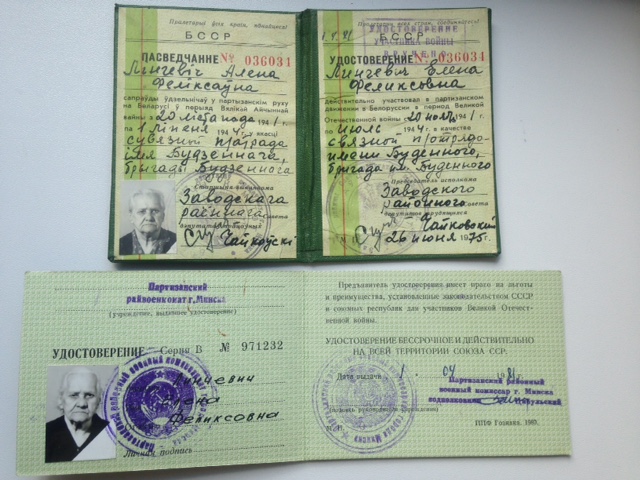 Пралетарыі ўсіх краін, яднайцеся!
БССР
ПАСВЕДЧАННЕ № 036031
Лінчевіч Алена
Феліксаўна
сапраўды ўдзельнічаў у партызанскім руху
на Беларусі ў перыяд Вялікай Айчыннай
вайны з 20 лістапада 1941 г.
па 1 ліпеня 1944 г. у якасці
сувязной п/атрада
імя Будзённага,
брыгады Будзённага
Старшыня выканкома
Заводскага
раённага Савета
дэпутатаў працоўных
Чайкоўскі
Пролетарии всех стран, соединяйтесь!
БССР
1.4.81
УДОСТОВЕРЕНИЕ
УЧАСТНИКА ВОЙНЫ
ВРУЧЕНО
УДОСТОВЕРЕНИЕ № 036031
Линчевич Елена
Феликсовна
действительно участвовал в партизанском
движении в Белоруссии в период Великой
Отечественной войны с 20 ноября 1941 г.
по июль 1944 г. в качестве
связной п/отряда
имени Буденного,
бригада им. Буденного
Председатель исполкома
Заводского
районного Совета
депутатов трудящихся
Чайковский
26 июня 1975 г.
Партизанский
райвоенкомат г. Минска
(учреждение, выдавшее удостоверение)
УДОСТОВЕРЕНИЕ Серия В № 971232
Линчевич
Елена
Феликсовна
Личная подпись
Предъявитель удостоверения имеет право на льготы
и преимущества, установленные законодательством СССР
и союзных республик для участников Великой Отечест-
венной войны.
УДОСТОВЕРЕНИЕ БЕССРОЧНОЕ И ДЕЙСТВИТЕЛЬНО
НА ВСЕЙ ТЕРРИТОРИИ СОЮЗА ССР.
Дата выдачи 1. 04 1981 г.
Партизанский районный
военный комиссар г. Минска
подполковник
(подпись руководителя учреждения)
ППФ Гознака. 1980.